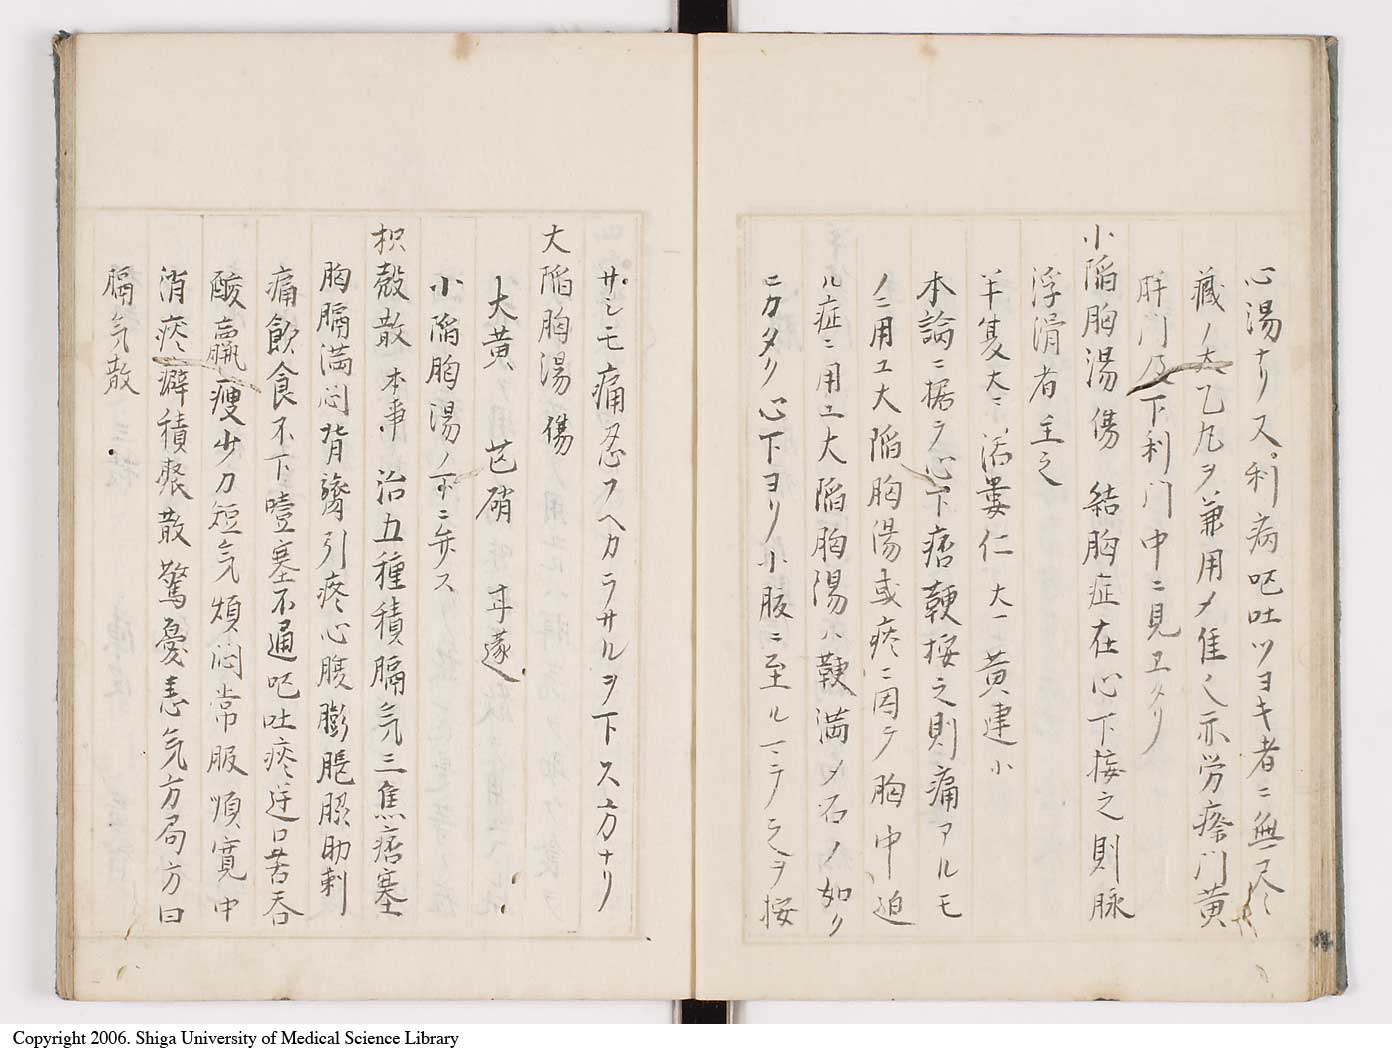 心湯ナリス利病呕吐ツヨキ者ニ無尽
蔵ノ太乙丸ヲ兼用メ佳シ亦労瘵門黄
胖門及下利門中ニ見エタリ
小陥胸湯傷 結胸症在心下按之則脉
浮滑者主之
半夏大 活蔞仁大 黄連小
本論ニ据ラ心下痞鞕按之則痛アルモ
ノニ用エ大陥胸湯或痰ニ因テ胸中迫
ル症ニ用エ大陥胸湯ハ鞕満メ石ノ如ク
ニカタク心下ヨリ小腹ニ至ル一ニテ之ヲ按
サシモ痛忍フヘカラサルヲ下ス方ナリ
大陥胸湯傷
大黄 芒硝 甘遂
小陥胸湯ノ下ニ弁ス
枳殻散本事 治五種積膈気三焦痞塞
胸膈満悶背膂引疼心腹膨脹脇肋刺
痛飲食不下噎塞不通呕吐痰逆口苦呑
酸羸痩少力短気煩悶常服順寛中
消痰癖積聚散驚憂恚気方局方曰
膈気散
Copyright 2006. Shiga University of Medical Science Library